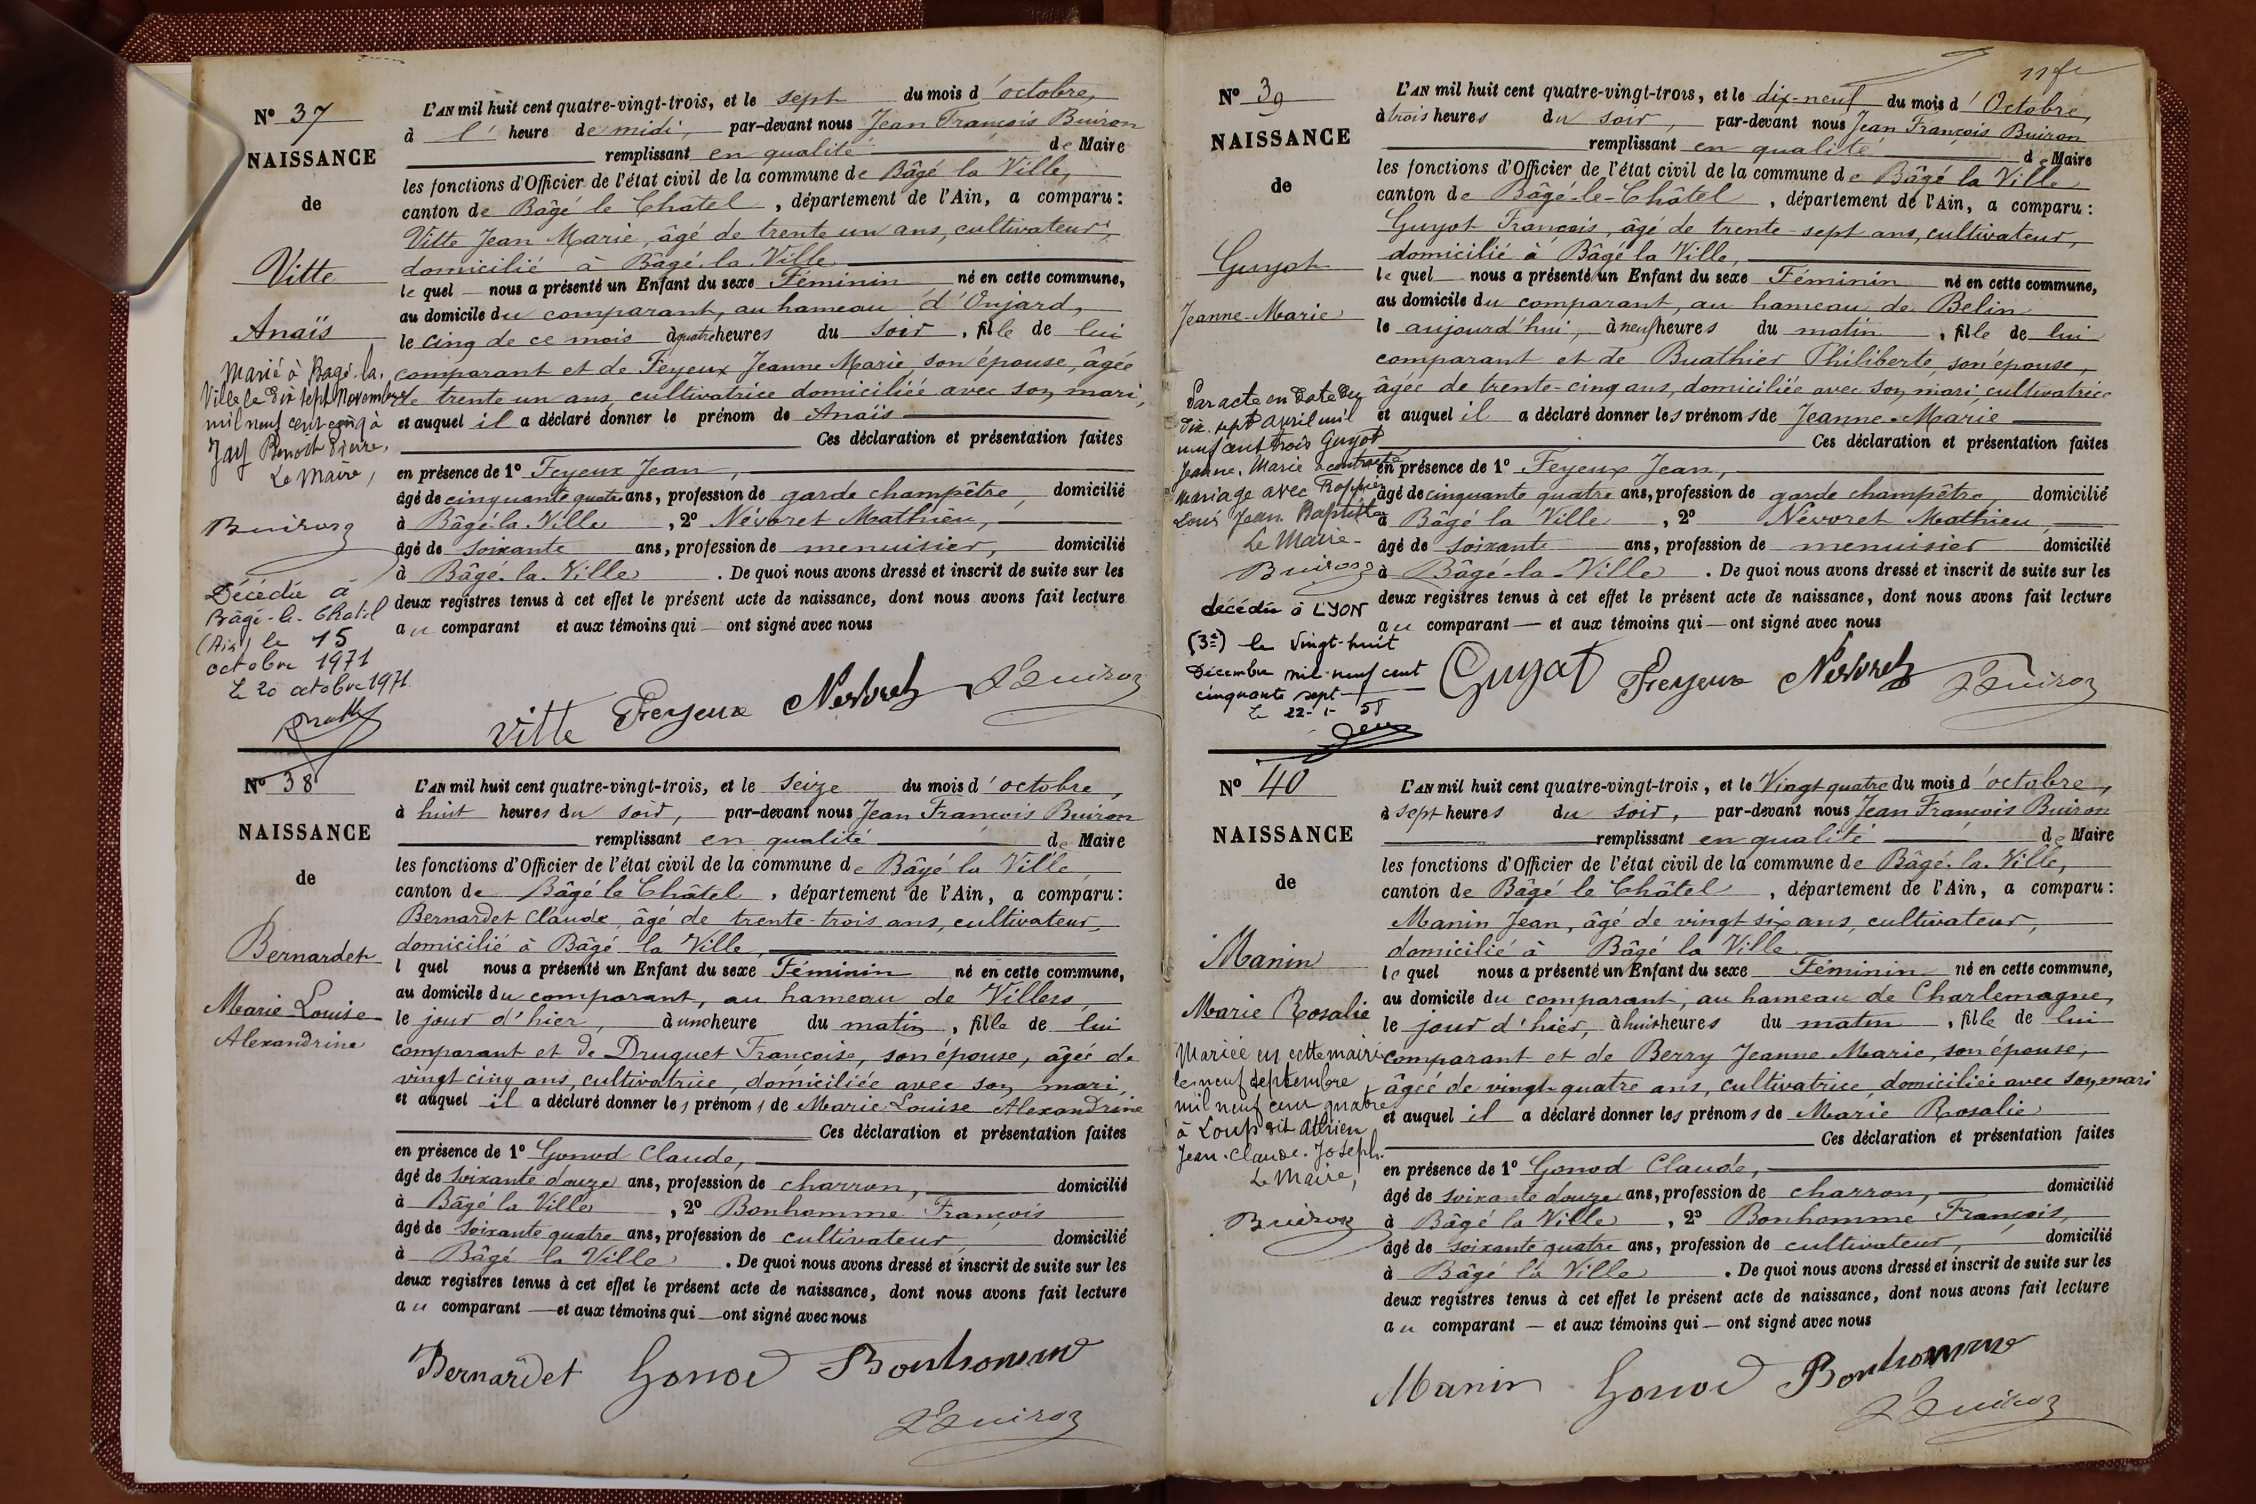 N° 37
NAISSANCE
de
Vitte
Anaïs
Marié à Bagé-la-
Ville le dix sept Novembre
mil neuf cent cinq à
Benoît Pierre,
Le Maire,
Buiron
Décédée à
Bâgé-le-Chatel
(Ain) le 15
octobre 1971
Le 20 octobre 1971
L'AN mil huit cent quatre-vingt-trois, et le sept du mois d'octobre,
à l' heure de midi, par-devant nous Jean François Buiron
remplissant en qualité de Maire
les fonctions d'Officier de l'état civil de la commune de Bâgé la Ville,
canton de Bâgé le Châtel, département de l'Ain, a comparu:
Vitte Jean Marie, âgé de trente un ans, cultivateur,
domicilié à Bâgé la Ville
le quel nous a présenté un Enfant du sexe Féminin né en cette commune,
au domicile du comparant, au hameau d'Onjard,
le cinq de ce mois à quatre heures du soir, fille de lui
comparant et de Feyeux Jeanne Marie, son épouse, âgée
de trente un ans, cultivatrice domiciliée avec son mari,
et auquel il a déclaré donner le prénom de Anaïs
Ces déclaration et présentation faites
en présence de 1° Feyeux Jean,
âgé de cinquante quatre ans, profession de garde champêtre, domicilié
à Bâgé la Ville, 2° Névoret Mathieu,
âgé de soixante ans, profession de menuisier, domicilié
à Bâgé-la-Ville. De quoi nous avons dressé et inscrit de suite sur les
deux registres tenus à cet effet le présent acte de naissance, dont nous avons fait lecture
au comparant et aux témoins qui ont signé avec nous
Vitte Feyeux Nevoret Buiron
N° 38
NAISSANCE
de
Bernardet
Marie Louise
Alexandrine
L'AN mil huit cent quatre-vingt-trois, et le seize du mois d'octobre,
à huit heures du soir, par-devant nous Jean François Buiron
remplissant en qualité de Maire
les fonctions d'Officier de l'état civil de la commune de Bâgé la Ville
canton de Bâgé le Châtel, département de l'Ain, a comparu:
Bernardet Claude, âgé de trente-trois ans, cultivateur,
domicilié à Bâgé la Ville,
l quel nous a présenté un Enfant du sexe Féminin né en cette commune,
au domicile du comparant, au hameau de Villers,
le jour d'hier, à une heure du matin, fille de lui
comparant et de Druguet Françoise, son épouse, âgée de
vingt cinq ans, cultivatrice, domiciliée avec son mari,
et auquel il a déclaré donner les prénoms de Marie Louise Alexandrine
Ces déclaration et présentation faites
en présence de 1° Gonod Claude,
âgé de soixante douze ans, profession de charron, domicilié
à Bâgé la Ville, 2° Bonhomme François
âgé de soixante quatre ans, profession de cultivateur, domicilié
à Bâgé la Ville. De quoi nous avons dressé et inscrit de suite sur les
deux registres tenus à cet effet le présent acte de naissance, dont nous avons fait lecture
au comparant et aux témoins qui ont signé avec nous
Bernardet Gonod Bonhomme
Buiron
N° 39
NAISSANCE
de
Guyot
Jeanne-Marie
Par acte en date du
dix-sept avril mil
neuf cent trois Guyot
Jeanne-Marie a contracté
mariage avec
Louis Jean Baptiste
Le Maire
Buiron
décédée à LYON
(3e) le vingt-huit
Décembre mil-neuf cent
cinquante sept
Le 22-1-58
11 f
L'AN mil huit cent quatre-vingt-trois, et le dix-neuf du mois d'Octobre,
à trois heures du soir, par-devant nous Jean François Buiron
remplissant en qualité de Maire
les fonctions d'Officier de l'état civil de la commune de Bâgé la Ville
canton de Bâgé-le-Châtel, département de l'Ain, a comparu:
Guyot François, âgé de trente-sept ans, cultivateur,
domicilié à Bâgé la Ville,
le quel nous a présenté un Enfant du sexe Féminin né en cette commune,
au domicile du comparant, au hameau de Belin
le aujourd'hui, à neuf heures du matin, fille de lui
comparant et de Buathier Philiberte, son épouse,
âgée de trente-cinq ans, domiciliée avec son mari, cultivatrice
et auquel il a déclaré donner les prénoms de Jeanne-Marie
Ces déclaration et présentation faites
en présence de 1° Feyeux Jean,
âgé de cinquante quatre ans, profession de garde champêtre, domicilié
à Bâgé la Ville, 2° Névoret Mathieu,
âgé de soixante ans, profession de menuisier domicilié
à Bâgé-la-Ville. De quoi nous avons dressé et inscrit de suite sur les
deux registres tenus à cet effet le présent acte de naissance, dont nous avons fait lecture
au comparant et aux témoins qui ont signé avec nous
Guyot Feyeux Nevoret Buiron
N° 40
NAISSANCE
de
Manin
Marie Rosalie
Mariée en cette mairie
le neuf septembre
mil neuf cent quatre
à Loup dit Athien
Jean-Claude-Joseph.
Le Maire,
Buiron
L'AN mil huit cent quatre-vingt-trois, et le Vingt quatre du mois d'octobre,
à sept heures du soir, par-devant nous Jean François Buiron
remplissant en qualité de Maire
les fonctions d'Officier de l'état civil de la commune de Bâgé-la-Ville,
canton de Bâgé le Châtel, département de l'Ain, a comparu:
Manin Jean, âgé de vingt six ans, cultivateur,
domicilié à Bâgé la Ville
le quel nous a présenté un Enfant du sexe Féminin né en cette commune,
au domicile du comparant, au hameau de Charlemagne,
le jour d'hier, à huit heures du matin, fille de lui
comparant et de Berry Jeanne Marie, son épouse,
âgée de vingt-quatre ans, cultivatrice, domiciliée avec son mari
et auquel il a déclaré donner les prénoms de Marie Rosalie
Ces déclaration et présentation faites
en présence de 1° Gonod Claude,
âgé de soixante douze ans, profession de charron, domicilié
à Bâgé la Ville, 2° Bonhomme François,
âgé de soixante quatre ans, profession de cultivateur, domicilié
à Bâgé la Ville. De quoi nous avons dressé et inscrit de suite sur les
deux registres tenus à cet effet le présent acte de naissance, dont nous avons fait lecture
au comparant et aux témoins qui ont signé avec nous
Manin Gonod Bonhomme
Buiron